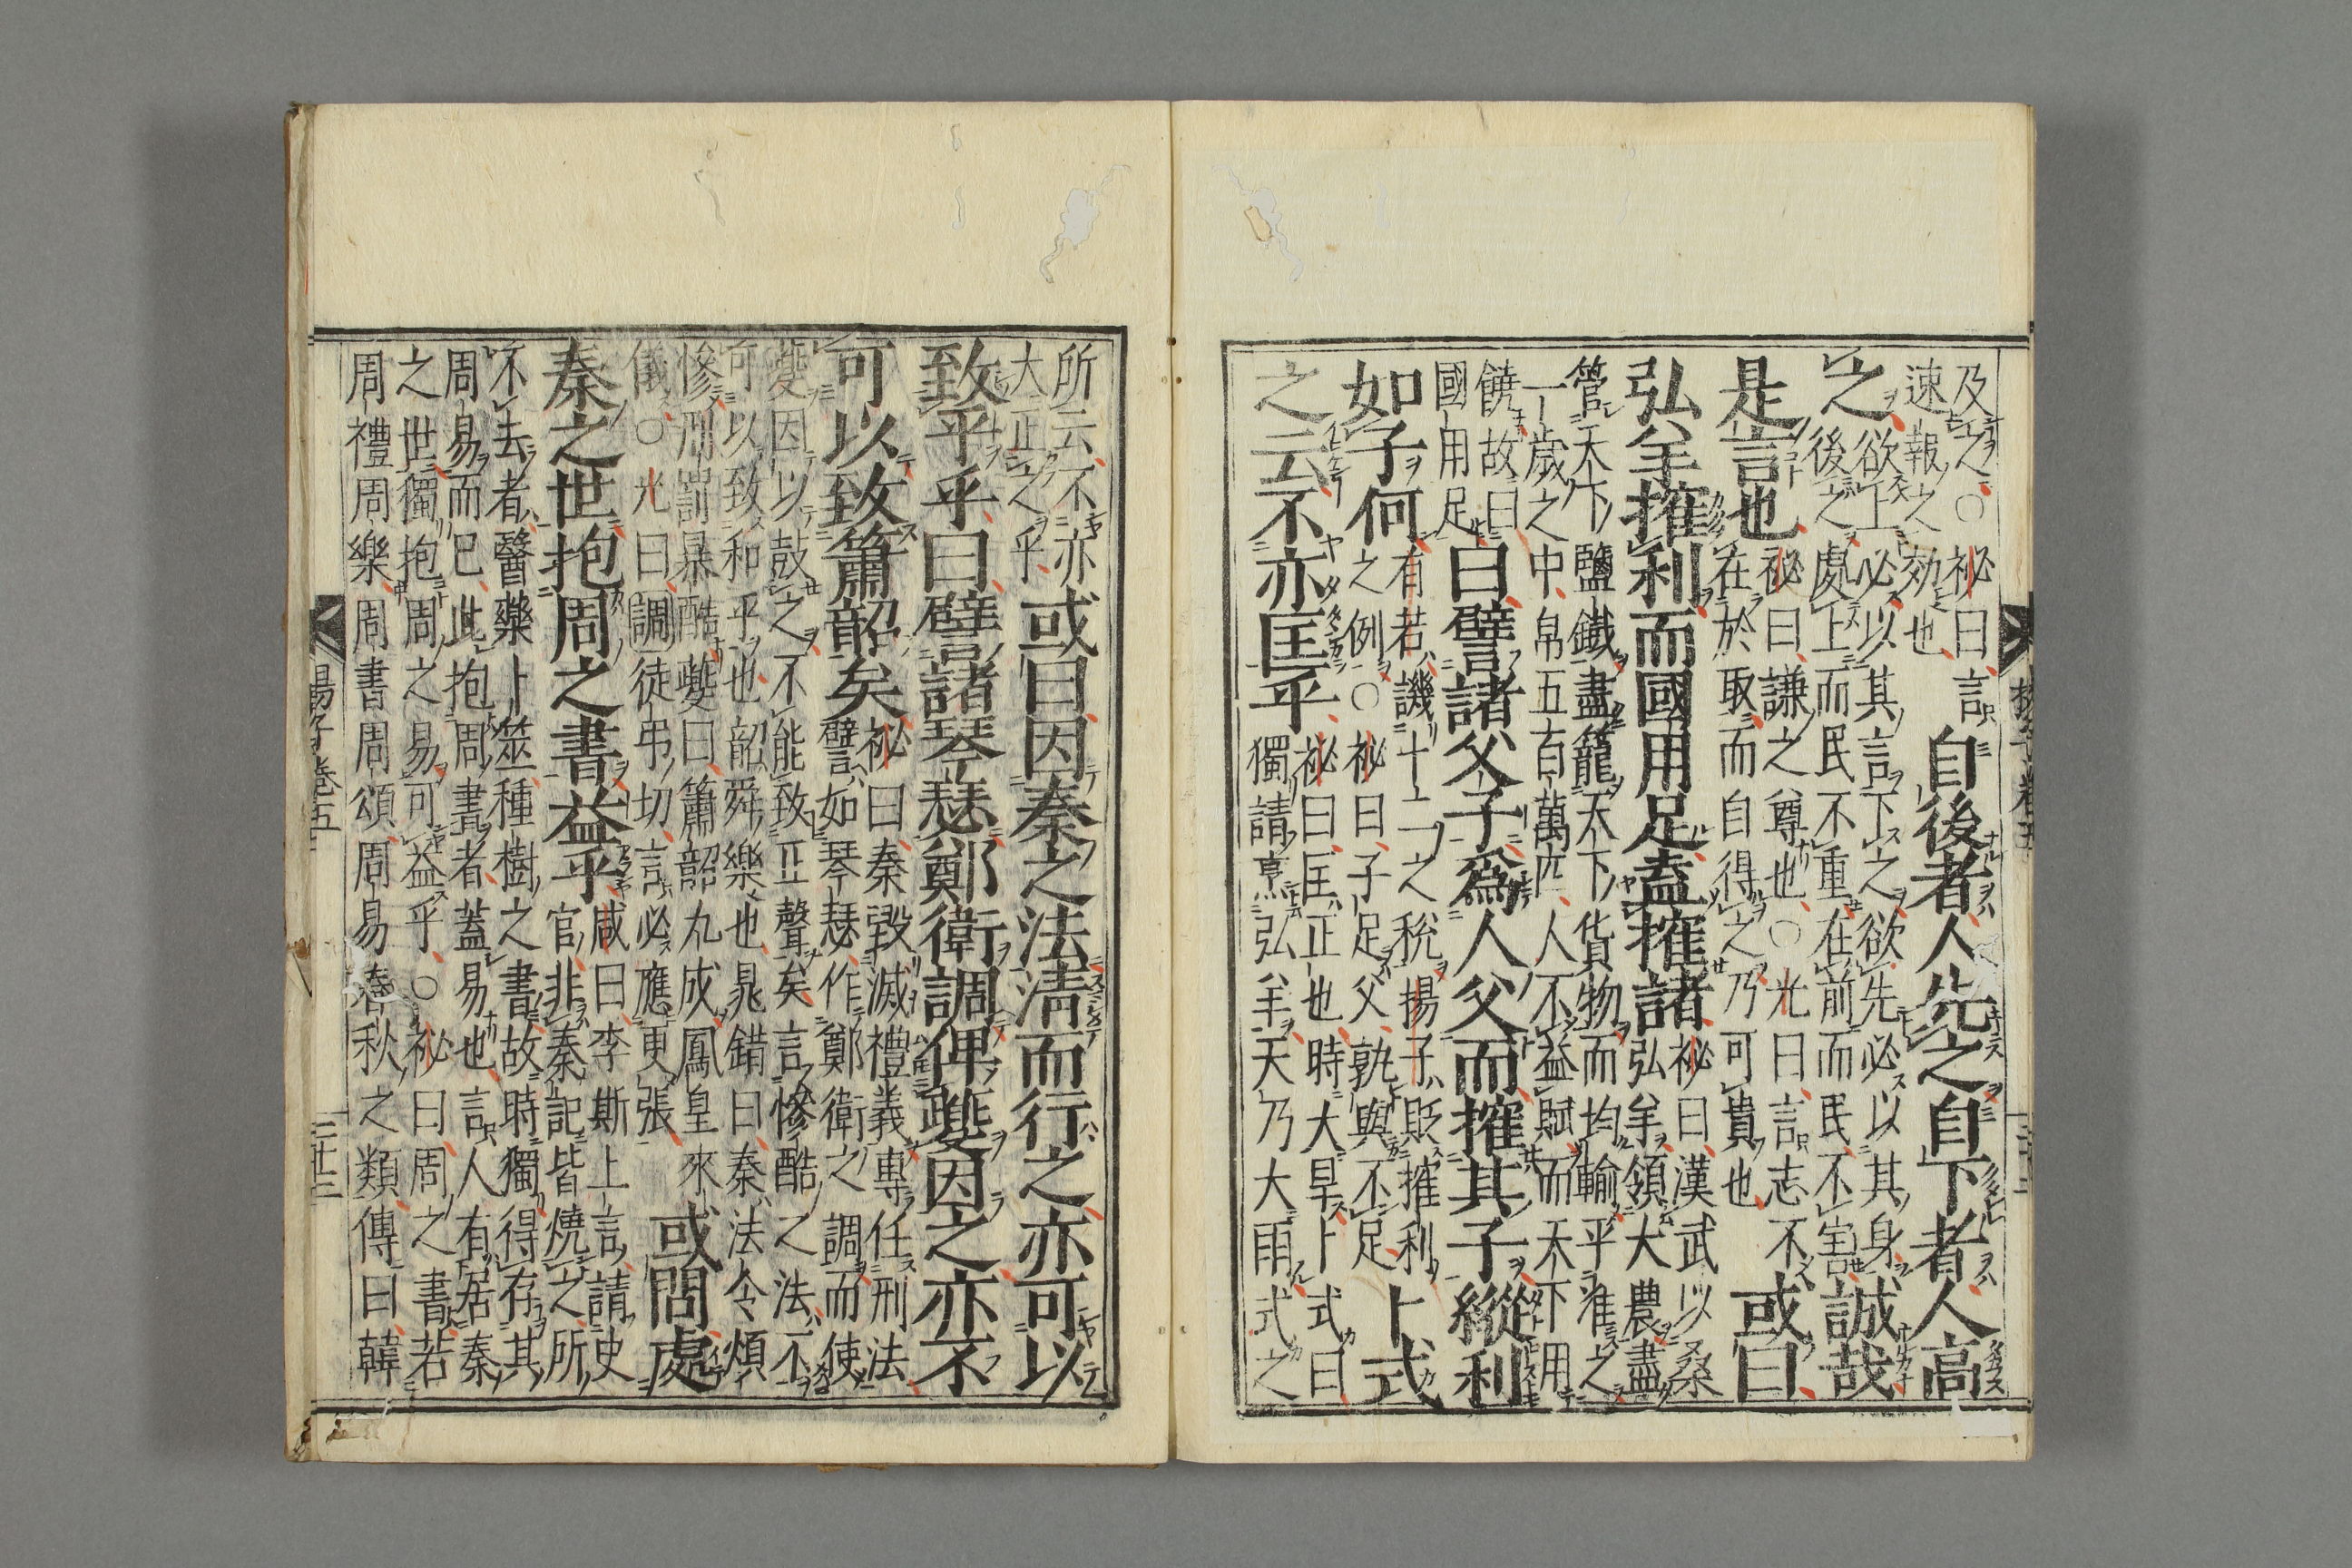 及之○祕曰言
速報之効也
自後者人先之自下者人高
之
欲上必以其言下之欲先必以其身
後之處上而民不重在前而民不害
誠哉
是言也
祕曰謙之尊也○光曰言志不
在於取而自得之乃可貴也
或曰
弘羊搉利而國用足盍搉諸
祕曰漢武以桑
弘羊領大農盡
管天下鹽鐵盡籠天下貨物而均輸平准之
一歲之中帛五百萬匹人不益賦而天下用
饒故曰
國用足
曰譬諸父子爲人父而搉其子縱利
如子何
有若譏十二之稅揚子貶搉利
之例○祕曰子足父孰與不足
卜式
之云不亦匡乎
祕曰匡正也時大旱卜式曰
獨請烹弘羊天乃大雨式之
所云不亦
大正之乎
或曰因秦之法淸而行之亦可以
致平乎曰譬諸琴瑟鄭衛調俾夔因之亦不
可以致簫韶矣
祕曰秦毀滅禮義專任刑法
譬如琴瑟作鄭衛之調而使
夔因以鼓之不能致正聲矣言慘酷之法不
可以致和平也韶舜樂也晁錯曰秦法令煩
慘刑罰暴酷夔曰簫韶九成鳳皇來
儀○光曰調徒弔切言必應更張
或問處
秦之世抱周之書益乎
咸曰李斯上言請史
官非秦記皆燒之所
不去者醫藥卜筮種樹之書故時獨得存其
周易而已此抱周書者蓋易也言人有居秦
之世獨抱周之易可益乎○祕曰周之書若
周禮周樂周書周頌周易春秋之類傳曰韓
揚子卷五